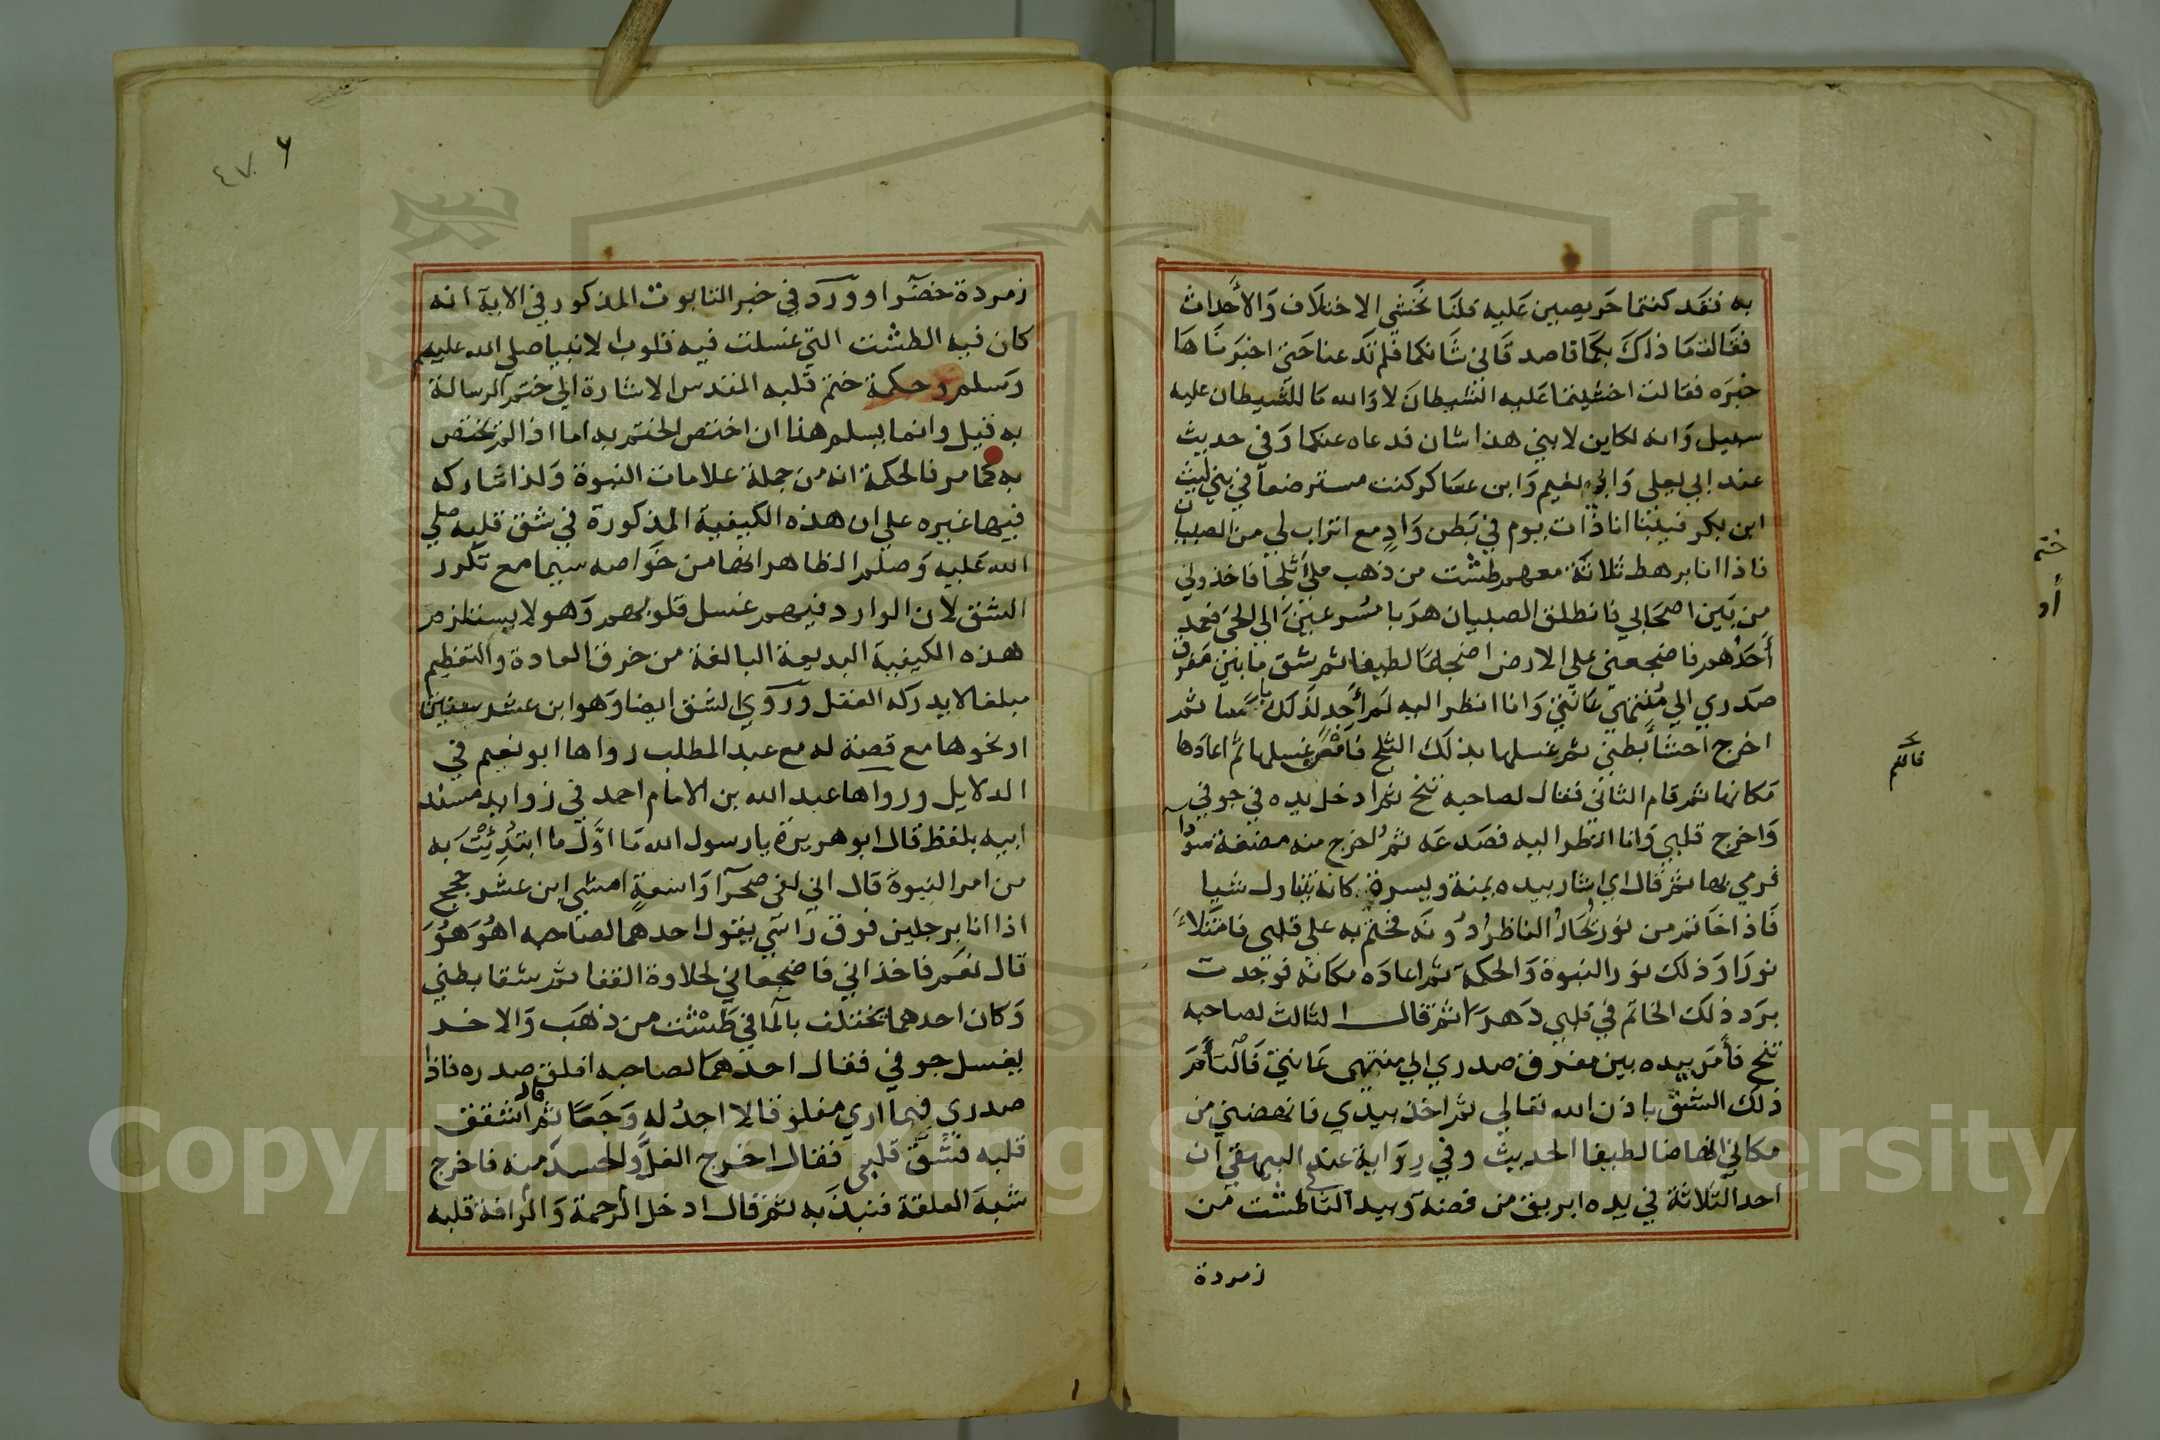 به فقد كنتما حريصين عليه قلنا نخشى الاختلاف والأحداث
فقالت ما ذاك بكما فاصدقاني شانكما فلم تدعنا حتى اخبرناها
خبره فقالت اخشيتما عليه الشيطان لا والله ما للشيطان عليه
سبيل وانه لكاين لابني هذا شان فدعاه عنكما وفي حديث
عند ابي يعلى وابي نعيم وابن عساكر كنت مسترضعا في بني ليث
ابن بكر فبينا انا ذات يوم في بطن واد مع اتراب لي من الصبيان
فاذا انا برهط ثلاثة معهم طشت من ذهب ملئ ثلجا فاخذوني
من بين اصحابي فانطلق الصبيان هربا مسرعين الى الحي فعمد
أحدهم فاضجعني على الارض اضجاعا لطيفا ثم شق ما بين مفرق
صدري الى منتهى عانتي وانا انظر اليه لم أجد لذلك مسا ثم
اخرج احشأ بطني ثم غسلها بذلك الثلج فانعم غسلها ثم اعادها
مكانها ثم قام الثاني فقال لصاحبه تنح ثم ادخل يده في جوفي
واخرج قلبي وانا انظر اليه فصدعه ثم اخرج منه مضغة سودا
فرمى بها ثم قال اي اشار بيده يمنة ويسرة كانه يتناول شيا
فاذا خاتم من نور يحار الناظر دونه فختم به على قلبي فامتلاء
نورا وذلك نور النبوة والحكمة ثم اعاده مكانه فوجدت
برد ذلك الخاتم في قلبي دهرا ثم قال الثالث لصاحبه
تنح فأمر بيده بين مفرق صدري الى منتهى عانتي فالتأم
ذلك الشق باذن الله تعالى ثم اخذ بيدي فانهضني من
مكاني انهاضا لطيفا الحديث وفي رواية عند البيهقي ان
احد الثلاثة في يده ابريق من فضة وبيد الثا طشت من
زمردة
ختم
زمردة خضرا وورد في خبر التابوت المذكور في الاية انه
كان فيه الطشت التي غسلت فيه قلوب الانبيا صلى الله عليهم
وسلم وحكمة ختم قلبه المقدس الاشارة الى ختم الرسالة
به قيل وانما يسلم هذا ان اختص الختم به اما اذا لم يختص
به كما مر فالحكمة انه من جملة علامات النبوة ولذا شاركه
فيها غيره على ان هذه الكيفية المذكورة في شق قلبه صلى
الله عليه وسلم الظاهر انها من خواصه سيما مع تكرر
الشق لان الوارد فيهم غسل قلوبهم وهو لا يستلزم
هذه الكيفية البديعة البالغة من خرق العادة والتعظيم
مبلغا لا يدركه العقل وروي الشق ايضا وهو ابن عشر سنين
او نحوها مع قصة له مع عبد المطلب رواها ابو نعيم في
الدلايل ورواها عبد الله بن الامام احمد في زوايد مسند
ابيه بلفظ قال ابو هريرة يارسول الله ما اوَّل ما ابتدئت به
من امر النبوة قال اني لفي صحرآ واسعة امشي ابن عشر حجج
اذا انا برجلين فوق رأسي يقول احدهما لصاحبه اهو هو
قال نعم فاخذاني فاضجعاني لحلاوة القفا ثم شقا بطني
وكان احدهما يختلف بالمآ في طشت من ذهب والاخر
يغسل جوفي فقال احدهما لصاحبه افلق صدره فاذا
صدري فيما اري مفلوقا لا اجد له وجعا ثم قال اشقق
قلبه فشق قلبي فقال اخرج الغل والحسد منه فاخرج
شبه العلقة فنبذ به ثم قال ادخل الرحمة والرافة قلبه